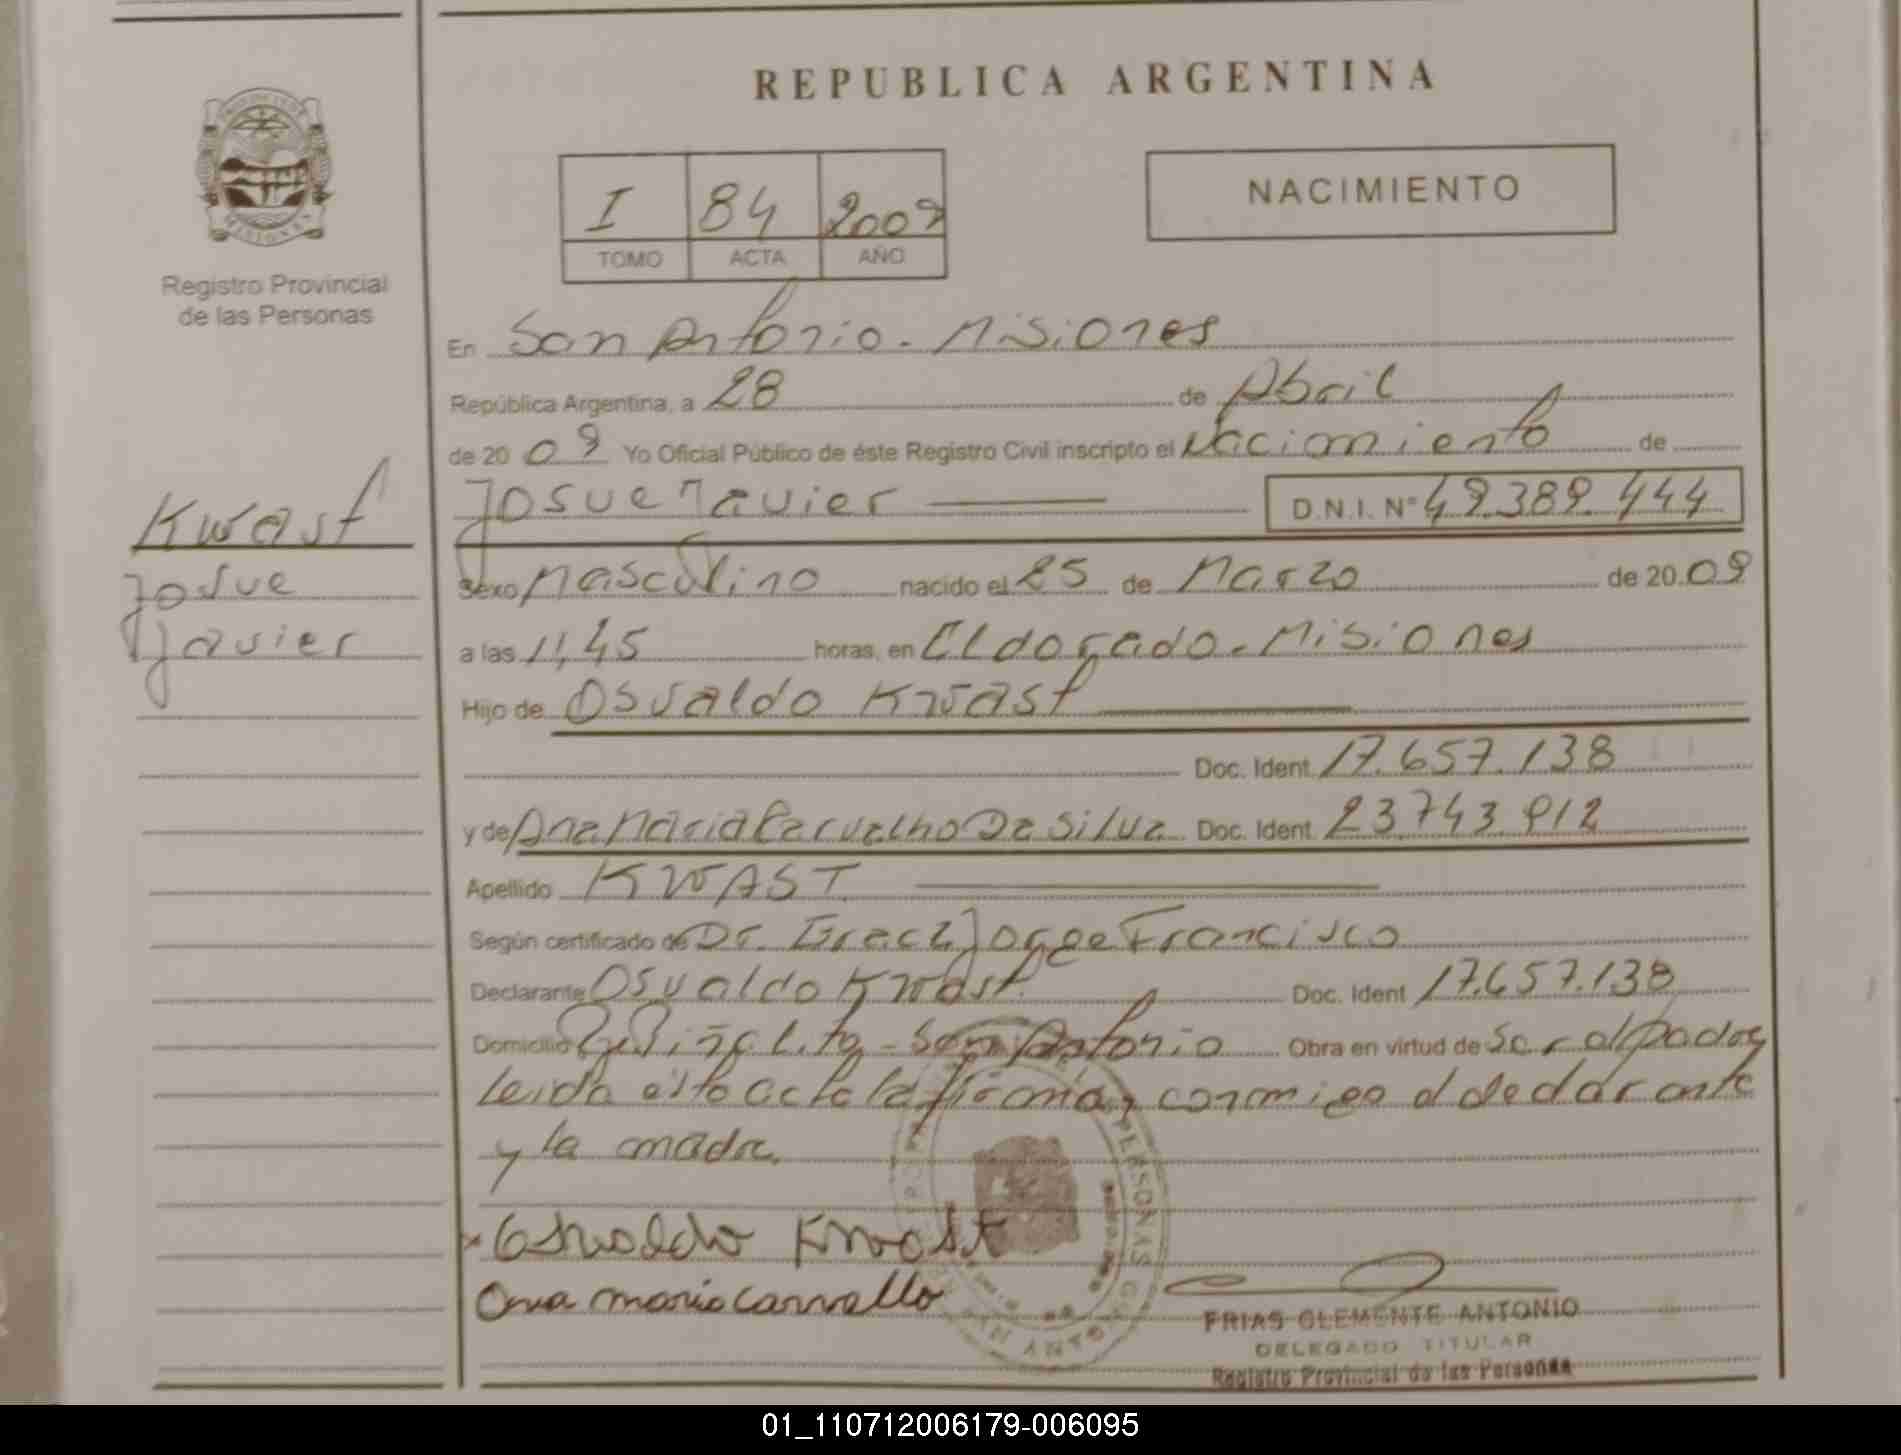 REPUBLICA ARGENTINA
PROVINCIA DE
MISIONES
Registro Provincial
de las Personas
I 84 2009
TOMO ACTA AÑO
NACIMIENTO
En San Antonio - Misiones
República Argentina, a 28 de Abril
de 20 09 Yo Oficial Público de éste Registro Civil inscripto el Nacimiento de
Josue Javier D.N.I. Nº 49.389.444
Kwast
Josue
Javier
Sexo Masculino nacido el 25 de Marzo de 20 09
a las 11,45 horas, en Eldorado - Misiones
Hijo de Osvaldo Kwast
Doc. Ident. 17.657.138
y de Ana Maria Carvalho Da Silva Doc. Ident. 23.743.912
Apellido KWAST
Según certificado de Dr. Jorge Francisco
Declarante Osvaldo Kwast Doc. Ident 17.657.138
Domicilio San Antonio Obra en virtud de
Leida esta acta la firma, conmigo el declarante
y la madre.
Osvaldo Kwast
Ana maria Carvallo
FRIAS CLEMENTE ANTONIO
DELEGADO TITULAR
Registro Provincial de las Personas
01_110712006179-006095